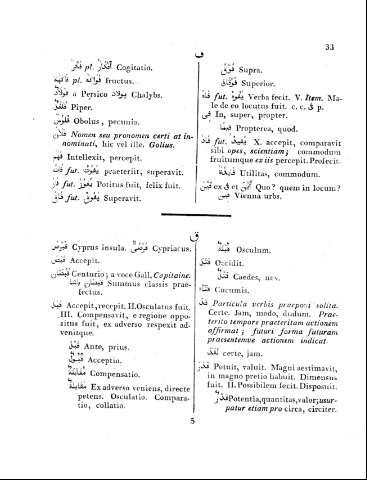 33
ف
فِكْر pl. أَفْكَار Cogitatio.
فَاكِهَة pl. فَوَاكِه fructus.
فولاد a Persico پولاد Chalybs.
فُلْفُل Piper.
فُلُوس Obolus, pecunia.
فُلَان Nomen seu pronomen certi at in-
nominati, hic vel ille. Golius.
فَهِمَ Intellexit, percepit.
فَاتَ fut. يَفُوت praeteriit, superavit.
فَازَ fut. يَفُوز Potitus fuit, felix fuit.
فَاقَ fut. يَفُوق Superavit.
فَوْق Supra.
فَوْقَانِيّ Superior.
فَاهَ fut. يَفُوه Verba fecit. V. Item. Ma-
le de eo locutus fuit. c. c. في p.
فِي In, super, propter.
فِيمَا Propterea, quod.
فَادَ fut. يَفِيد X. accepit, comparavit
sibi opes, scientiam; commodum
fruitumque ex iis percepit. Profecit.
فَايِدَة Utilitas, commodum.
فَيْن ex في et أَيْن Quo? quem in locum?
فيين Vienna urbs.
ق
قبرص Cyprus insula. Cypriacus.
Accepit.
قبطان Centurio; a voce Gall. Capitaine.
قبطان باشا Summus classis prae-
fectus.
قبل Accepit, recepit. II. Osculatus fuit.
III. Compensavit, e regione oppo-
situs fuit, ex adverso respexit ad-
venitque.
قَبْل Ante, prius.
قَبُول Acceptio.
مقابلة Compensatio.
مقابلة Ex adverso veniens, directe
petens. Osculatio. Compara-
tio, collatio.
قُبْلَة Osculum.
قَتَل Occidit.
قَتْل Caedes, nex.
قثاء Cucumis.
قَد Particula verbis praeponi solita.
Certe. Jam, modo, dudum. Prae-
terito tempore praeteritam actionem
affirmat; futuri forma futuram
praesentemve actionem indicat.
لَقَد certe, jam.
قدر Potuit, valuit. Magni aestimavit,
in magno pretio habuit. Dimensus
fuit. II. Possibilem fecit. Disposuit.
قدر Potentia, quantitas, valor; usur-
patur etiam pro circa, circiter.
5